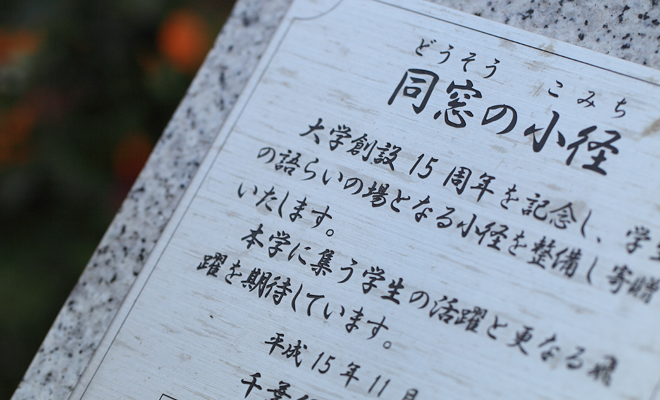 どうそう こみち
同窓の小径
大学創設15周年を記念し、学生
の語らいの場となる小径を整備し寄贈
いたします。
本学に集う学生の活躍と更なる飛
躍を期待しています。
平成15年11月
千葉